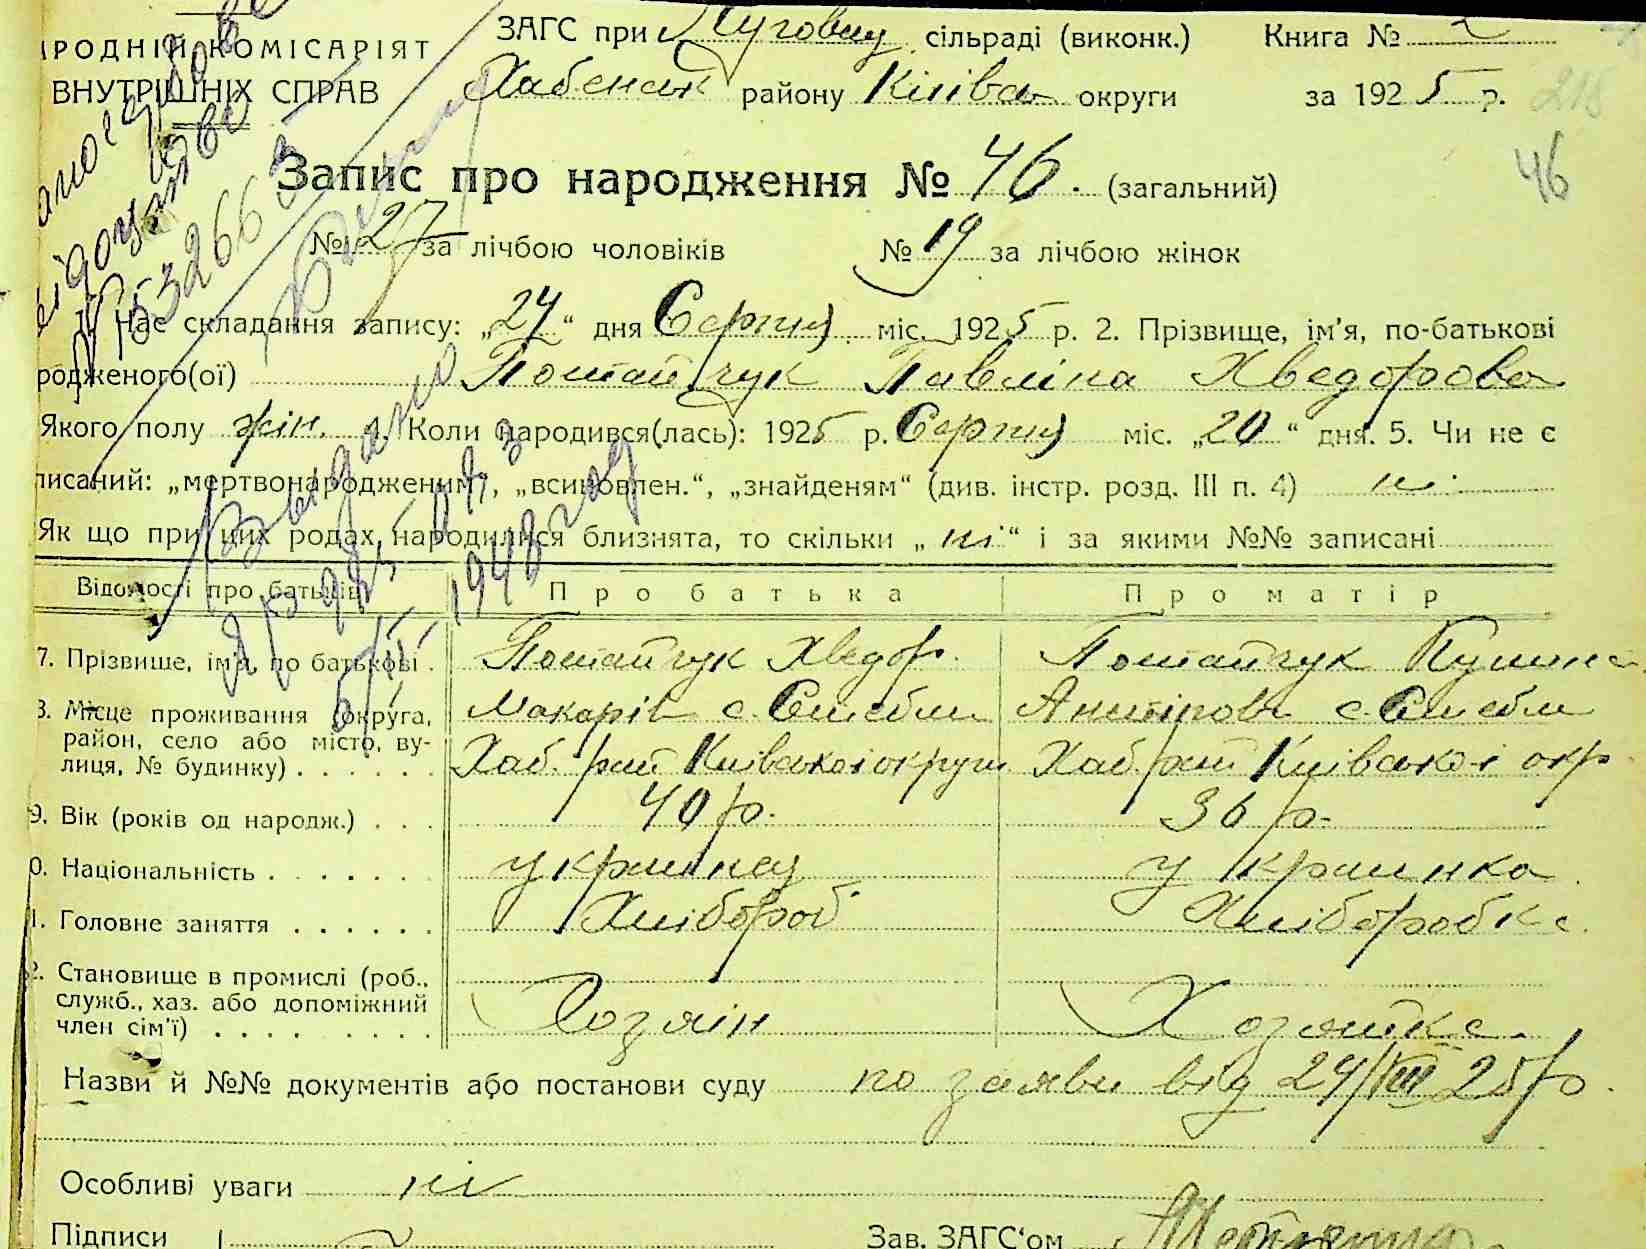 РОДНІЙ КОМІСАРІЯТ
ВНУТРІШНІХ СПРАВ
ЗАГС при сільраді (виконк.) Книга № 2
Хабенськ району Київськ округи за 1925 р.
46
Запис про народження № 46. (загальний)
№ 27 за лічбою чоловіків № 19 за лічбою жінок
Час складання запису: „24“ дня Серпня міс. 1925 р. 2. Прізвище, ім'я, по-батькові
родженого(ої) Потапчук Павліна Хведорова
Якого полу жін. 4. Коли народився(лась): 1925 р. Серпня міс. „20“ дня. 5. Чи не є
писаний: „мертвонародженим“, „всиновлен.“, „знайденям“ (див. інстр. розд. III п. 4) ні
Як що при цих родах народилися близнята, то скільки „ні“ і за якими №№ записані
Відомості про батьків Про батька Про матір
7. Прізвище, ім'я, по батькові . Потапчук Хведор Потапчук
8. Місце проживання (округа, Макарів с. Стебли с. Стебли
район, село або місто, ву- Хаб. рай Київської округи Хаб. рай Київської окр
лиця, № будинку) . . . . . .
9. Вік (років од народж.) . . . 40 р. 36 р.
0. Національність . . . . . . . українец українка
1. Головне заняття . . . . . . Хлібороб Хліборобка
2. Становище в промислі (роб.,
служб., хаз. або допоміжний Хозяїн Хозяйка
член сім'ї) . . . . . . . . .
Назви й №№ документів або постанови суду по заяви від 24/VIII 25 р.
Особливі уваги ні
Підписи Зав. ЗАГС'ом
Выдано
1948 году